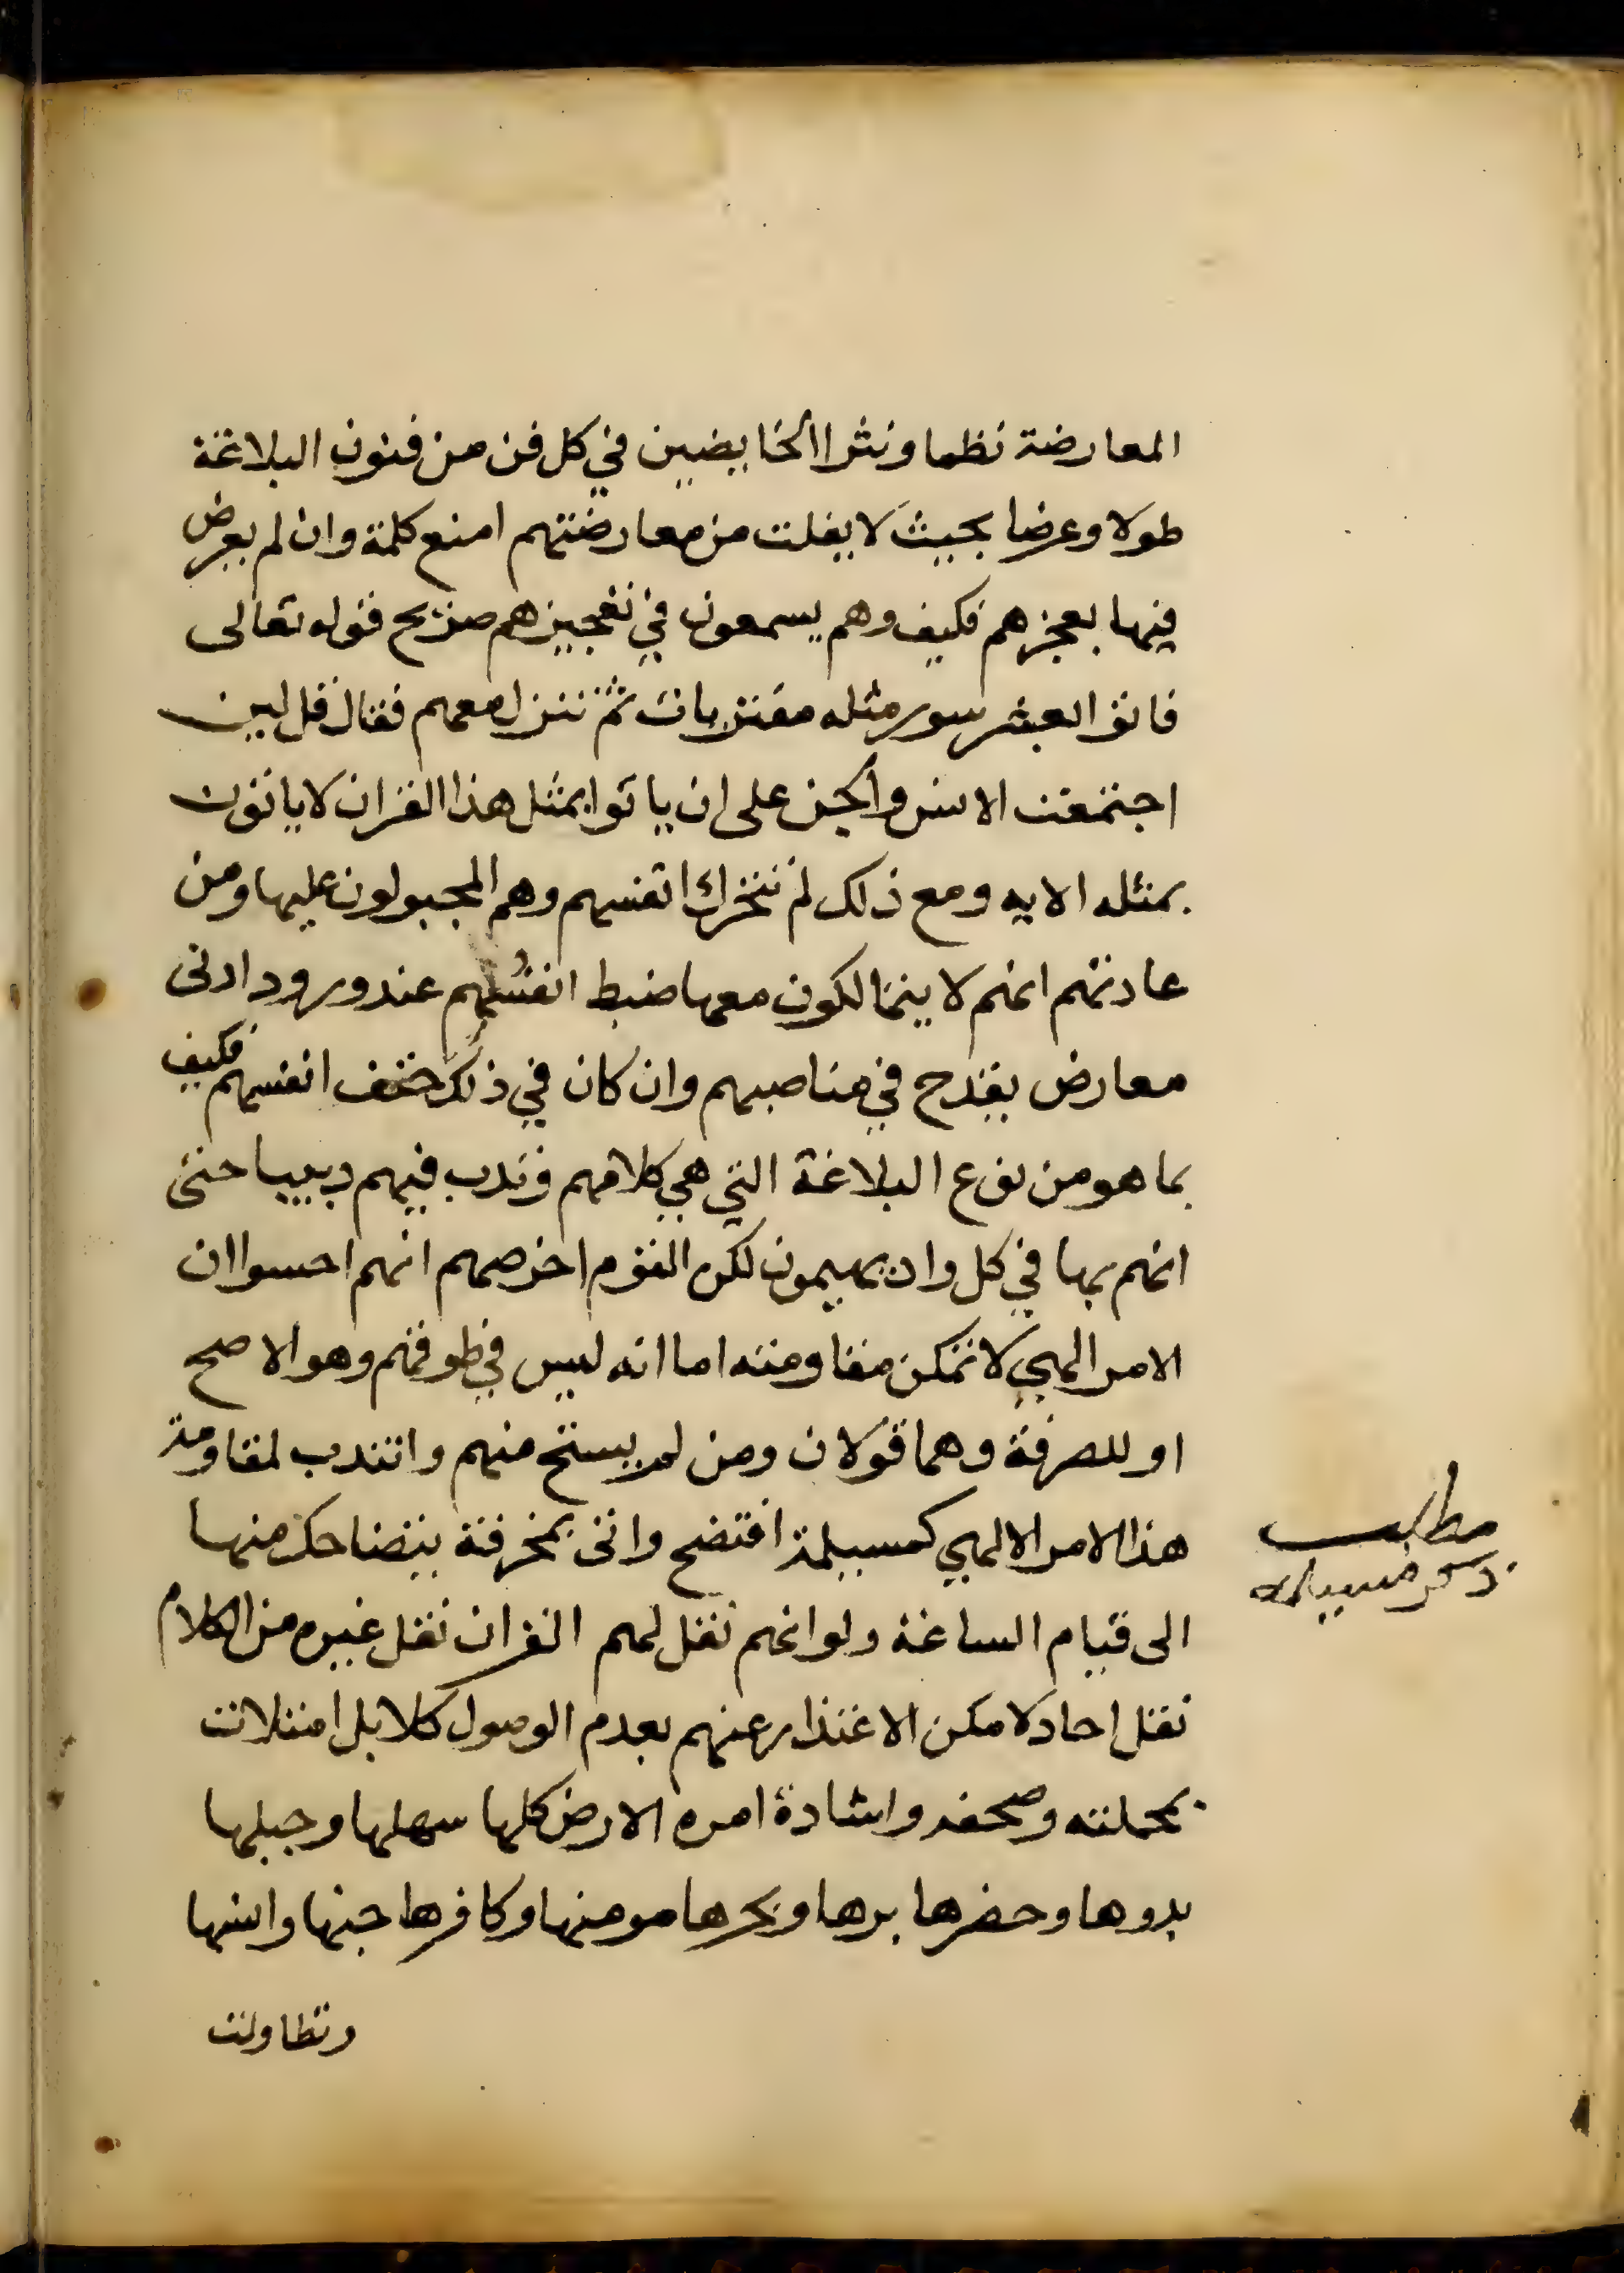 المعارضة نظما ونثرا الخايضين في كل فن من فنون البلاغة
طولا وعرضا بحيث لا يفلت من معارضتهم امنع كلمة وان لم يعرض
فيها بعجزهم فكيف وهم يسمعون في تعجيزهم صريح قوله تعالى
فاتوا بعشر سور مثله مفتريات ثم تنزل معهم فقال قل لين
اجتمعت الانس والجن على ان ياتوا بمثل هذا القران لا ياتون
بمثله الايه ومع ذلك لم تتحرك انفسهم وهم المجبولون عليها ومن
عادتهم انهم لا يتمالكون معها ضبط انفسهم عند ورود ادنى
معارض يقدح في مناصبهم وان كان في ذلك حتف انفسهم فكيف
بما هو من نوع البلاغة التي هي كلامهم وتدب فيهم دبيبا حتى
انهم بها في كل واد يهيمون لكن القوم اخرصهم انهم احسوا ان
الامر الهي لا تمكن مقاومته اما انه ليس في طوقهم وهو الاصح
او للصرفة وهما قولان ومن لم يستح منهم وانتدب لمقاومة
هذا الامر الالهي كمسيلمة افتضح واتى بمخرقة يتضاحك منها
الى قيام الساعة ولو انهم نقل لهم القران نقل غيره من الكلام
نقل احاد لامكن الاعتذار عنهم بعدم الوصول كلا بل امتلات
بحملته وصحفه واشادة امره الارض كلها سهلها وجبلها
بدوها وحضرها برها وبحرها مومنها وكافرها جنها وانسها
وتطاولت
مطلب
ذكر مسيلمه